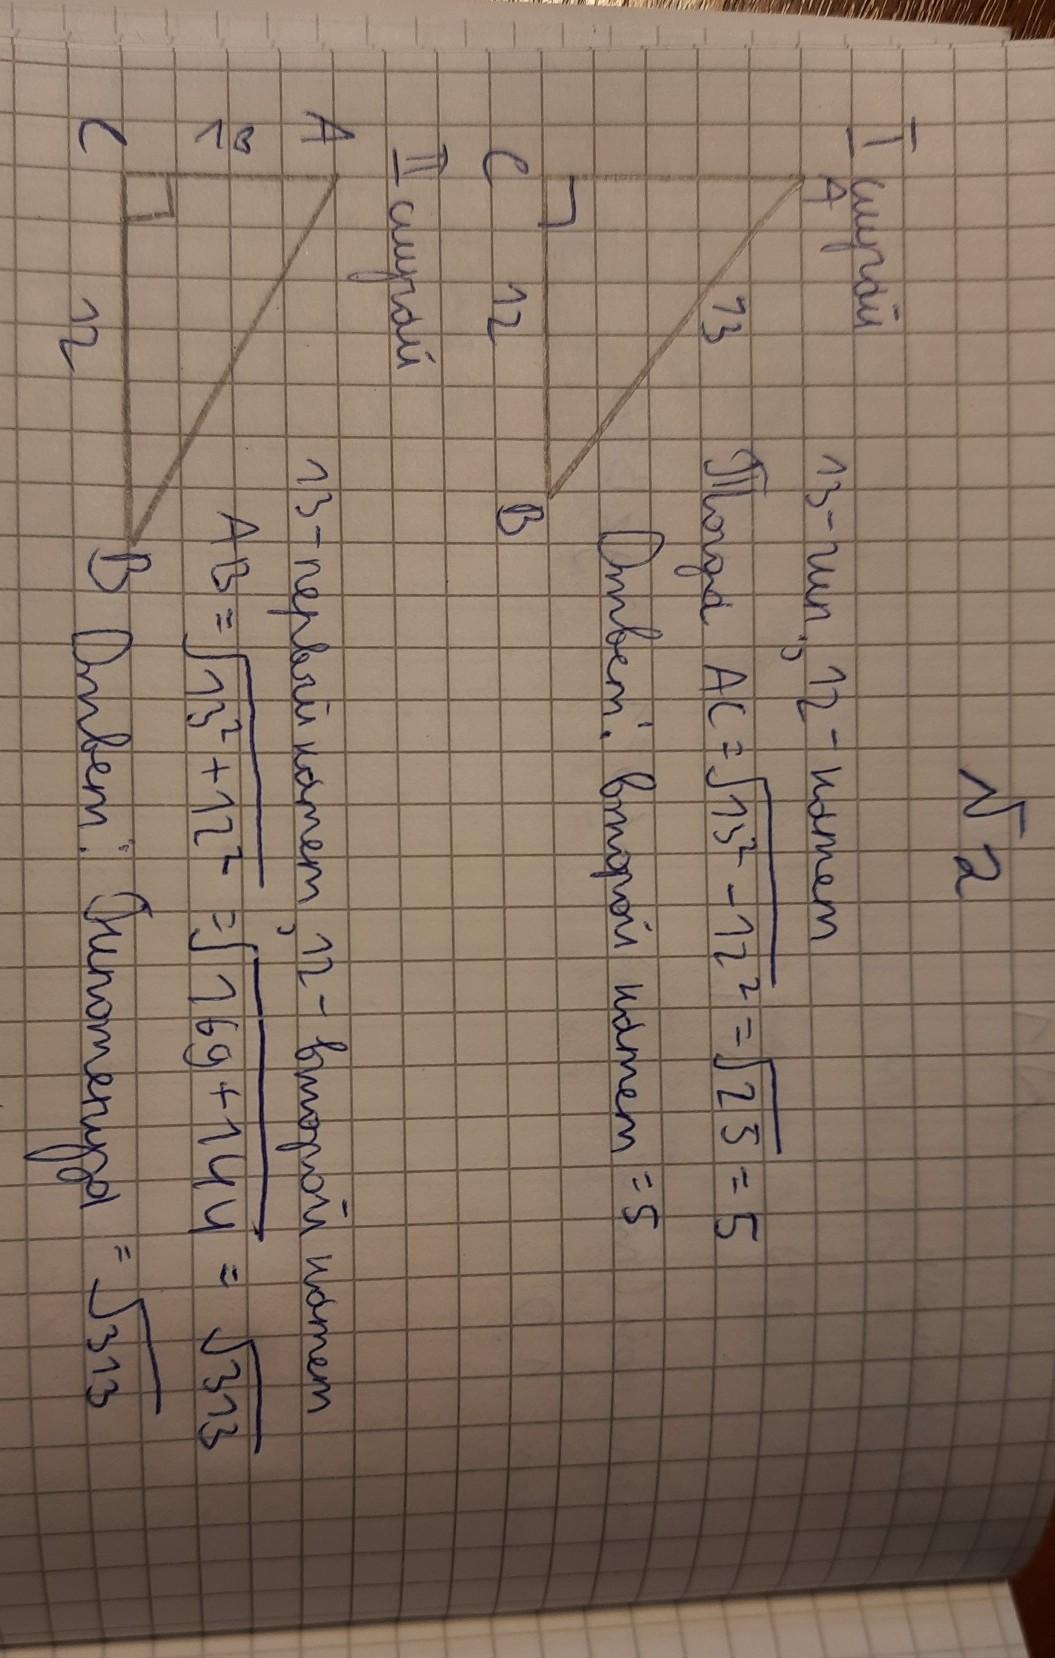 √2
I случай
A
13
C
12
B
13 - гип., 12 - катет
Тогда AC = √13² - 12² = √25 = 5
Ответ: второй катет = 5
II случай
A
13
C
12
B
13 - первый катет, 12 - второй катет
AB = √13² + 12² = √169 + 144 = √313
Ответ: Гипотенуза = √313